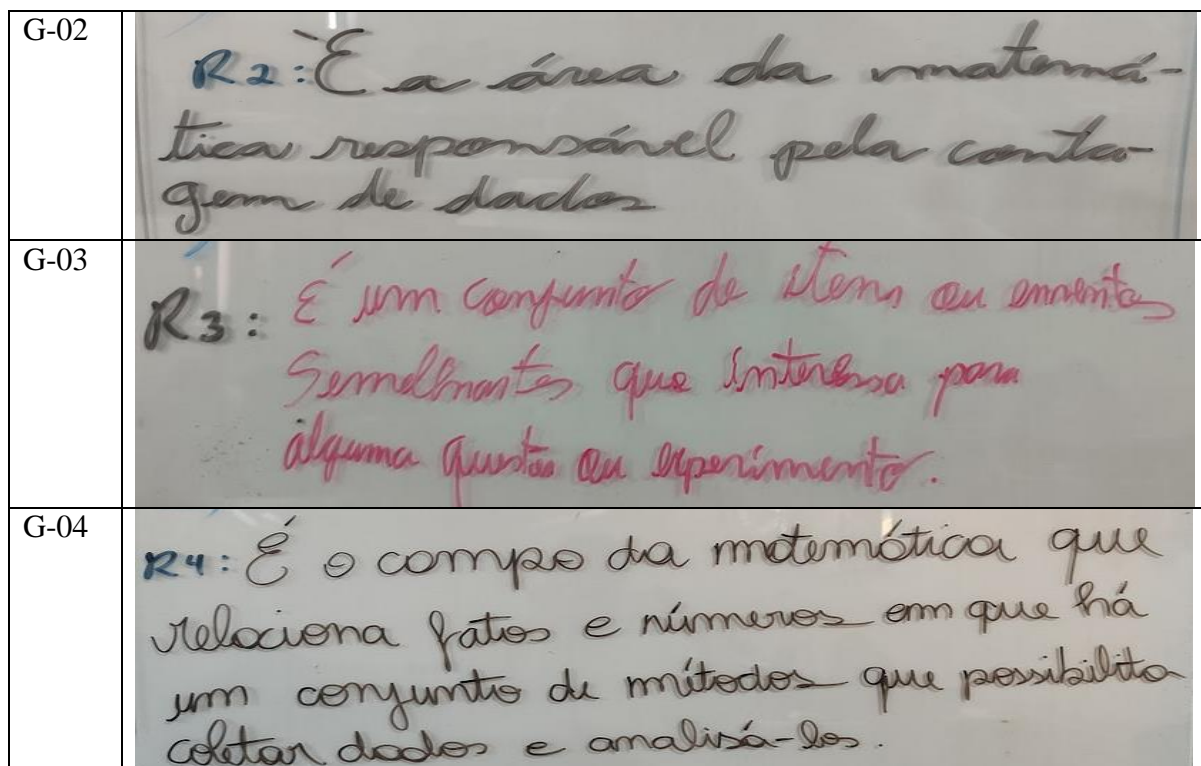 G-02
R2: É a área da matemá-
tica responsável pela conta-
gem de dados
G-03
R3: É um conjunto de itens ou eventos
Semelhantes que interessa para
alguma questão ou experimento.
G-04
R4: É o campo da matemática que
relaciona fatos e números em que há
um conjunto de métodos que possibilita
coletar dados e analisá-los.